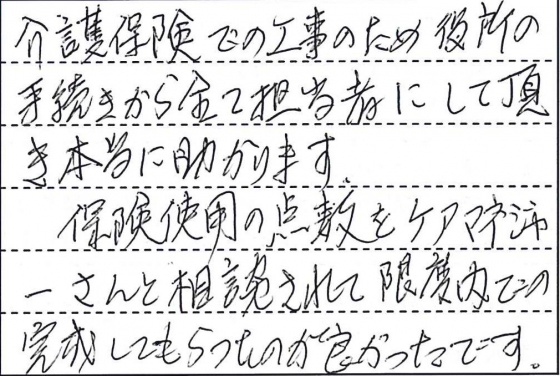 介護保険での工事のため役所の
手続きから全て担当者にして頂
き本当に助かります。
保険使用の点数をケアマネジャ
ーさんと相談されて限度内での
完成してもらったのが良かったです。